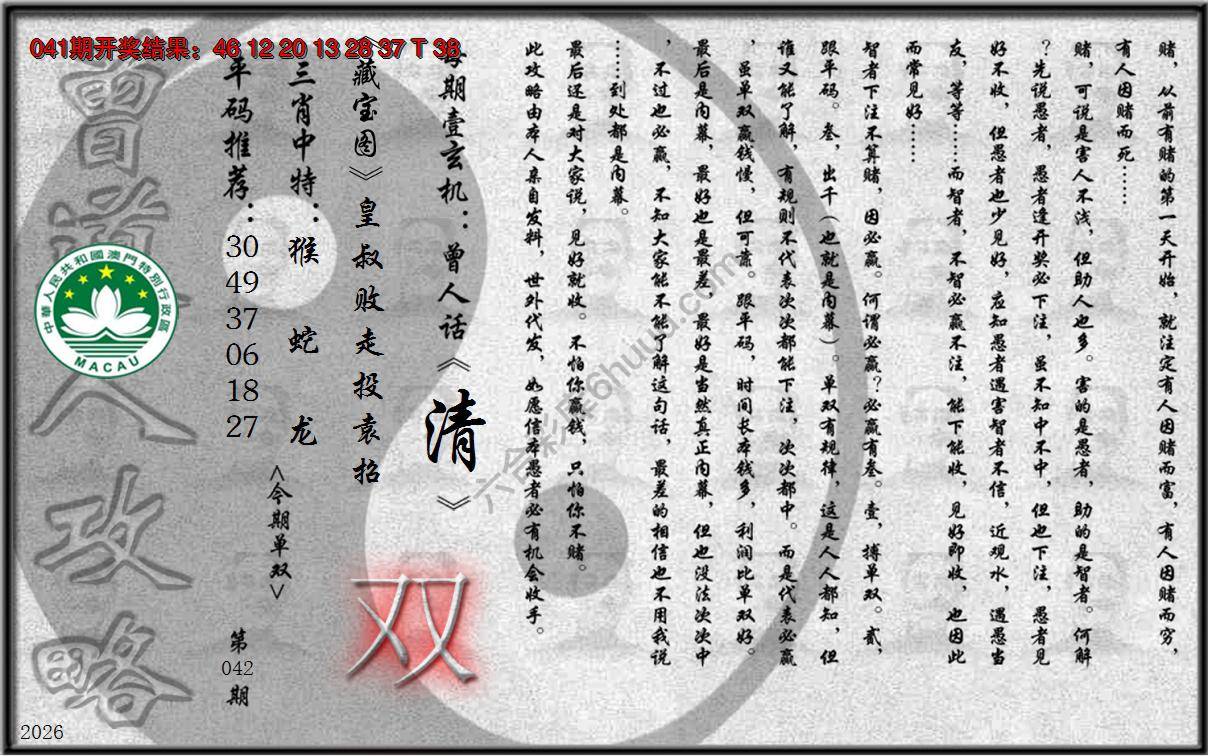 041期开奖结果：46 12 20 13 28 37 T 38
赌，从前有赌的第一天开始，就注定有人因赌而富，有人因赌而穷，
有人因赌而死……
赌，可说是害人不浅，但助人也多。害的是愚者，助的是智者。何解
？先说愚者，愚者逢开奖必下注，虽不知中不中，但也下注，愚者见
好不收，但愚者也少见好，应知愚者遇害智者不信，近观水，遇愚当
友，等等……而智者，不智必赢不注，能下能收，见好即收，也因此
而常见好……
智者下注不算赌，因必赢。何谓必赢？必赢有叁。壹，搏单双。贰，
跟平码。叁，出千（也就是内幕）。单双有规律，这是人人都知，但
谁又能了解，有规则不代表次次都能下注，次次都中。而是代表必赢
，虽单双赢钱慢，但可靠。跟平码，时间长本钱多，利润比单双好。
最后是内幕，最好也是最差，最好是当然真正内幕，但也没法次次中
，不过也必赢，不知大家能不能了解这句话，最差的相信也不用我说
……到处都是内幕。
最后还是对大家说，见好就收。不怕你赢钱，只怕你不赌。
此攻略由本人亲自发料，世外代发，如愿信本愚者必有机会收手。
每期壹玄机：曾人话《清》
《藏宝图》皇叔败走投袁招
双
三肖中特：猴 蛇 龙
<今期单双>
平码推荐：30 49 37 06 18 27
第042期
曾道人攻略
中華人民共和國澳門特別行政區
MACAU
六合彩库6huuu.com
2026